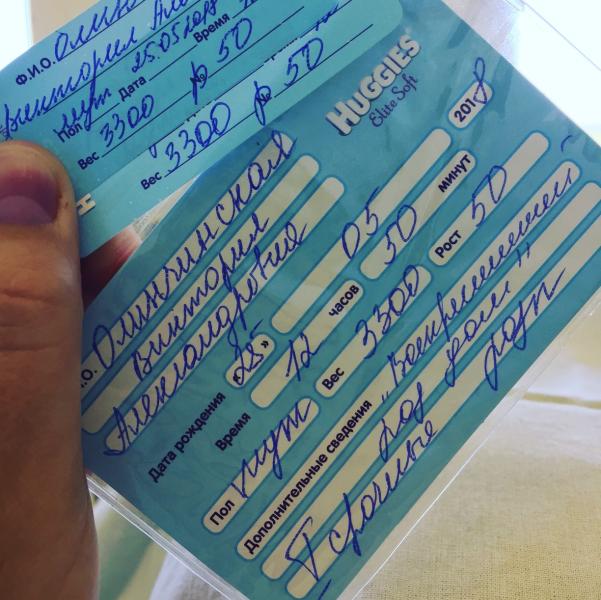 Ф.И.О. Олин
Виктория Але
Пол муж Дата 25.05.2018 Время
Вес 3300 р 50
Вес 3300 р 50
HUGGIES
Elite Soft
.О. Олинчинская
Виктория
Александровна
Дата рождения «25» 05 2018
Время 12 часов 50 минут
Пол муж Вес 3300 Рост 50
Дополнительные сведения
род. дом"
I срочные роды